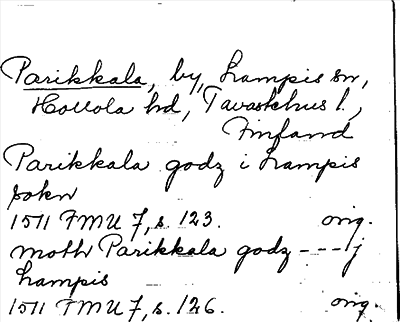 Parikkala, by, Lampis sn,
Hollola hd, Tavastehus l.,
Finland
Parikkala godz i Lampis
sokn
1511 FMU 7, s. 123. orig.
moth Parikkala godz - - - j
Lampis
1511 FMU 7, s. 126. orig.